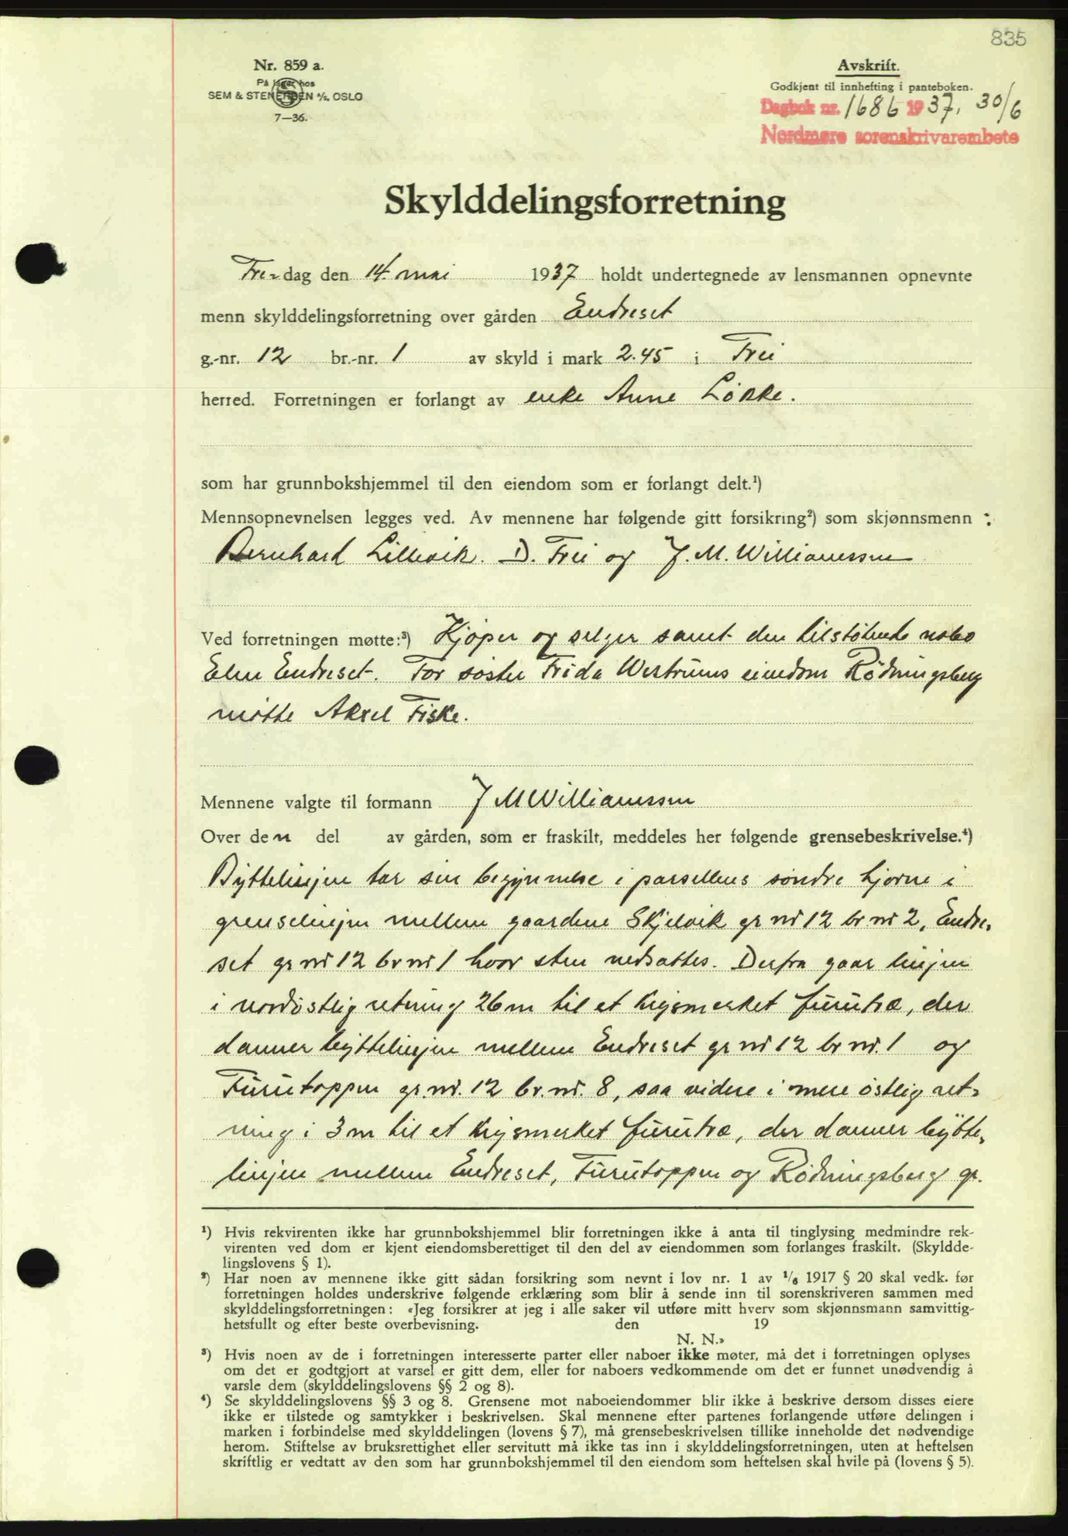 835
Nr. 859 a.
På lager hos
SEM & STENERSEN A/S, OSLO
7—36.
Avskrift.
Godkjent til innhefting i panteboken.
Dagbok nr. 1686 1937, 30/6
Nordmøre sorenskrivarembete
Skylddelingsforretning
Fre-dag den 14. mai 1937 holdt undertegnede av lensmannen opnevnte
menn skylddelingsforretning over gården Endreset
g.-nr. 12 br.-nr. 1 av skyld i mark 2.45 i Frei
herred. Forretningen er forlangt av enke Anne Løkke.
som har grunnbokshjemmel til den eiendom som er forlangt delt.¹)
Mennsopnevnelsen legges ved. Av mennene har følgende gitt forsikring²) som skjønnsmenn :
Bernhard Lillevik. D. Frei og J. M. Williamssen
Ved forretningen møtte:³) Kjøper og selger samt den tilstøtende nabo
Elen Endreset. For søster Frida Westrums eiendom Rødningsberg
møtte Aksel Fiske.
Mennene valgte til formann J M Williamssen
Over den del av gården, som er fraskilt, meddeles her følgende grensebeskrivelse.⁴)
Byttelinjen tar sin begynnelse i parsellens søndre hjørne i
grenselinjen mellem gaardene Skjelvik gr nr 12 br nr 2, Endre-
set gr nr 12 br nr 1 hvor sten nedsattes. Derfra gaar linjen
i nordøstlig retning 26 m til et krysmerket furutræ, der
danner byttelinjen mellem Endreset gr nr 12 br nr. 1 og
Furutoppen gr. nr. 12 br. nr. 8, saa videre i mere østlig ret-
ning i 3 m til et krysmerket furutræ, der danner bytte-
linjen mellem Endreset, Furutoppen og Rødningsberg gr.
¹) Hvis rekvirenten ikke har grunnbokshjemmel blir forretningen ikke å anta til tinglysing medmindre rek-
virenten ved dom er kjent eiendomsberettiget til den del av eiendommen som forlanges fraskilt. (Skyldde-
lingslovens § 1).
²) Har noen av mennene ikke gitt sådan forsikring som nevnt i lov nr. 1 av 1/6 1917 § 20 skal vedk. før
forretningen holdes underskrive følgende erklæring som blir å sende inn til sorenskriveren sammen med
skylddelingsforretningen: «Jeg forsikrer at jeg i alle saker vil utføre mitt hverv som skjønnsmann samvittig-
hetsfullt og efter beste overbevisning. den 19
N. N.»
³) Hvis noen av de i forretningen interesserte parter eller naboer ikke møter, må det i forretningen oplyses
om det er godtgjort at varsel er gitt dem, eller for naboers vedkommende om det er funnet unødvendig å
varsle dem (skylddelingslovens §§ 2 og 8).
⁴) Se skylddelingslovens §§ 3 og 8. Grensene mot naboeiendommer blir ikke å beskrive dersom disses eiere
ikke er tilstede og samtykker i beskrivelsen. Skal mennene efter partenes forlangende utføre delingen i
marken i forbindelse med skylddelingen (lovens § 7), må grensebeskrivelsen tillike inneholde det nødvendige
herom. Stiftelse av bruksrettighet eller servitutt må ikke tas inn i skylddelingsforretningen, uten at heftelsen
skriftlig er vedtatt av den som har grunnbokshjemmel til den eiendom som heftelsen skal hvile på (lovens § 5).